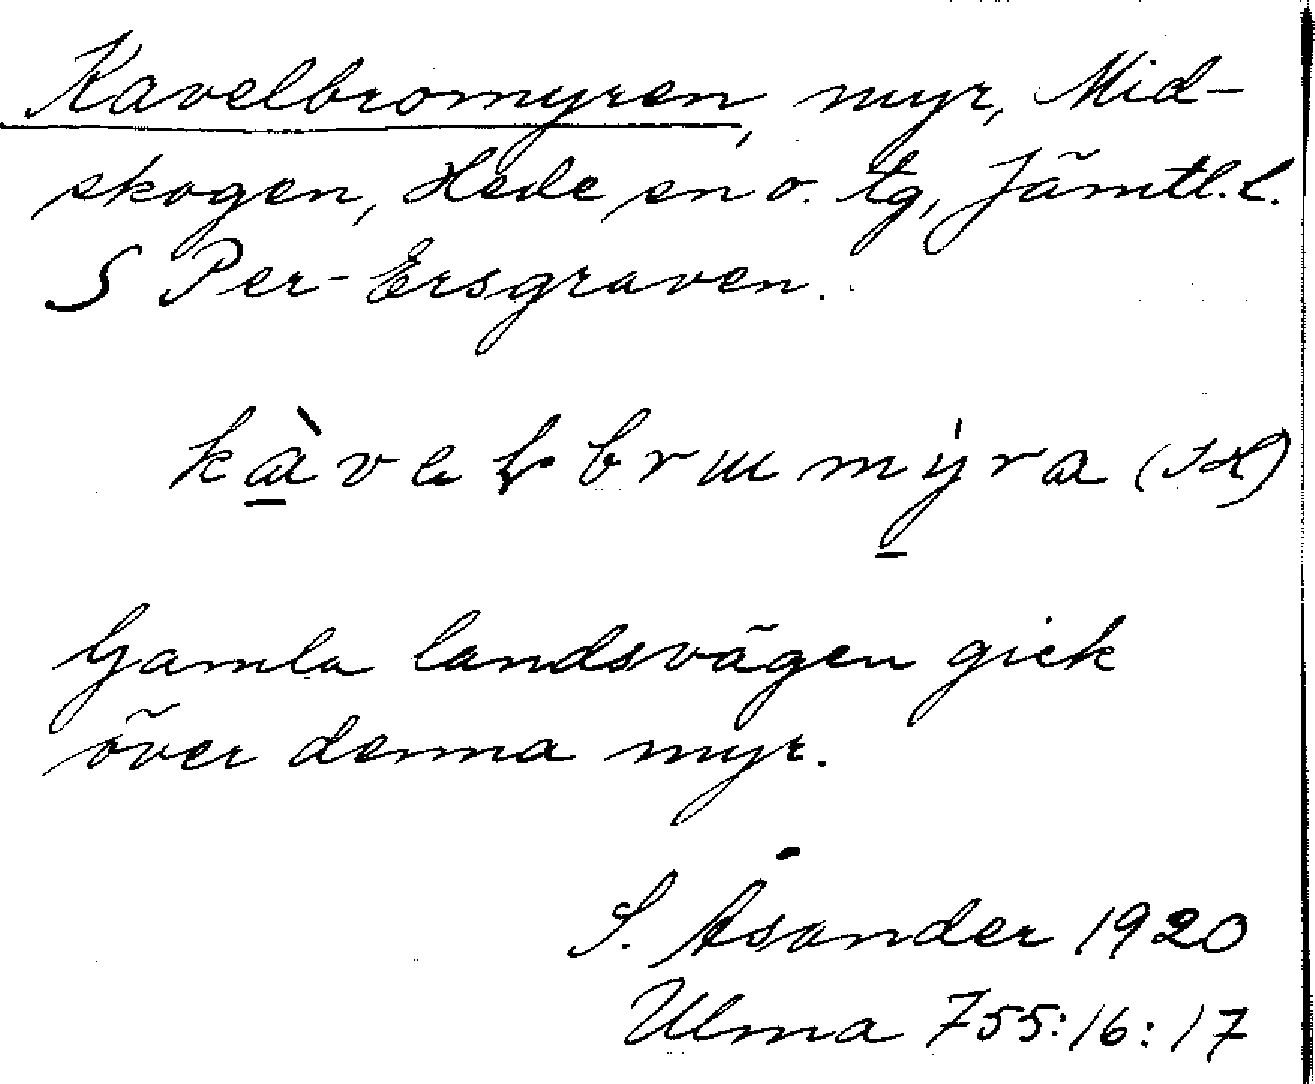 Kavelbromyren, myr, Mid-
skogen, Hede sn o. tg, Jämtl.l.
S Per-Ersgraven.
kàvelbrɯmýra
Gamla landsvägen gick
över denna myr.
S. Åsander 1920
Ulma 755:16:17